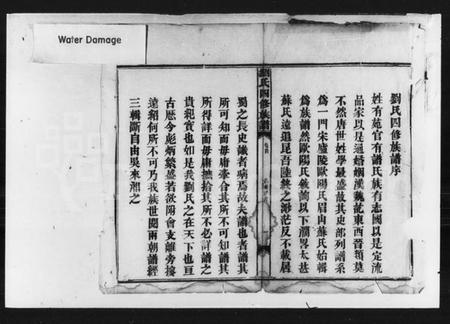 Water Damage
劉氏四修族譜序
姓有苑官有譜氏族有志國以是定流
品家以是通婚姻漢魏東西晉類莫
不然唐世姓學最盛故其史部列譜系
爲一門宋廬陵歐陽氏眉山蘇氏始輯
爲族譜然歐陽氏以下濶畧太甚
蘇氏遠追昆吾陸終之渺茫反不載居
劉氏四修族譜
蜀之長史識者病焉故夫譜也者譜其
所可知而毋庸牽合其所不可知譜其
所得詳而毋庸摭拾其所不必詳譜之
貴覈實也如是我劉氏之在天下也亘
古歷今彪炳繁盛若欲閤會支離旁接
遠紹何所不可乃我族世閱兩朝譜經
三輯斷自由吳來湘之